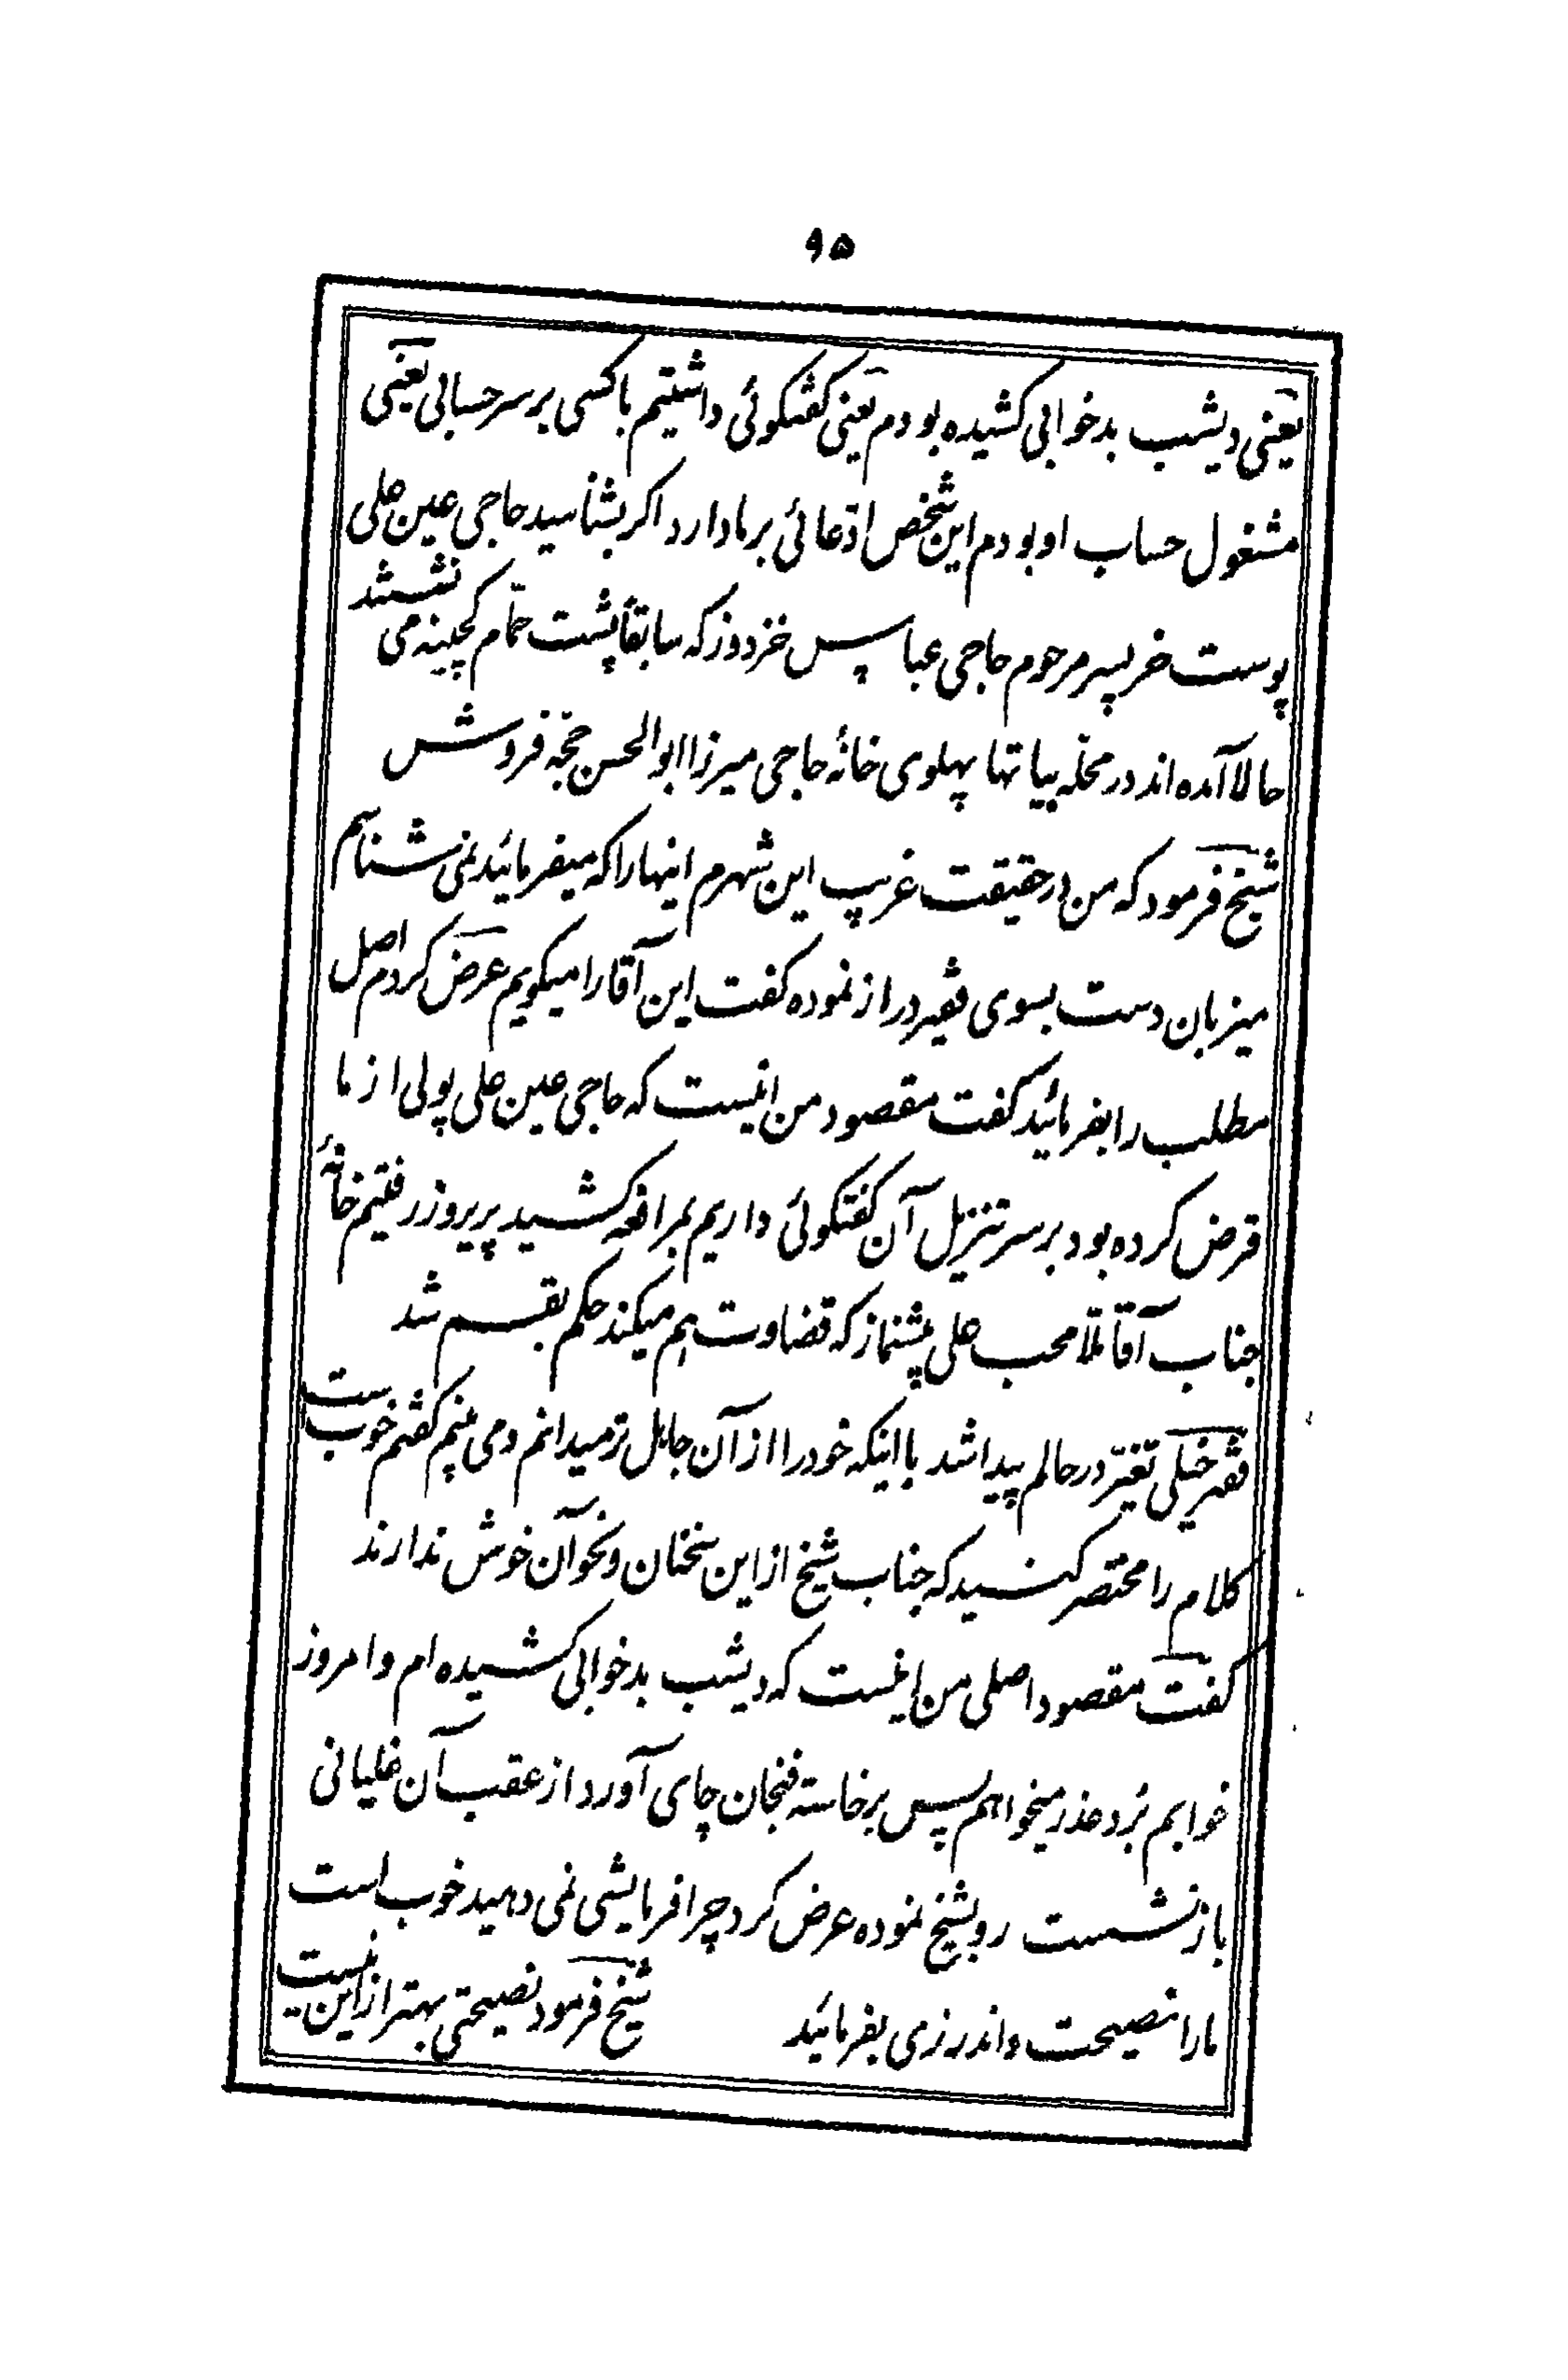 ۹۵
یعنی دیشب بدخوابی کشیده بودم یعنی کفتکوئی داشتیم با کسی بر سر حسابی یعنی
مشغول حساب او بودم این شخص ادّعائی بر ما دارد اکر بشناسید حاجی عین علی
پوست خر پسر مرحوم حاجی عباس خزدوز که سابقاً پشت حمّام کچینه می نشستند
حالا آمده اند در محلّه بیاتها پهلوی خانهٔ حاجی میرزا ابوالحسن جخّه فروش
شیخ فرمود که من در حقیقت غریب این شهرم اینها را که میفرمائید نمی شناسم
میزبان دست بسوی فقیر دراز نموده کفت این آقا را میکویم عرض کردم اصل
مطلب را بفرمائید کفت مقصود من اینست که حاجی عین علی پولی از ما
قرض کرده بود بر سر تنزیل آن کفتکوئی داریم بمرافعه کشید پریروز رفتیم خانهٔ
جناب آقا ملّا محب علی پیشنماز که قضاوت هم میکند حکم بقسم شد
فقیر خیلی تغیّر در حالم پیدا شد با اینکه خود را از آن جاهل تر میدانم و می بینم کفتم خوب است
کلام را مختصر کنید که جناب شیخ از این سخنان و نحو آن خوش ندارند
کفت مقصود اصلی من اینست که دیشب بدخوابی کشیده ام و امروز
خوابم برد عذر میخواهم پس برخاسته فنجان چای آورد از عقب آن غلیانی
باز نشست رو بشیخ نموده عرض کرد چرا فرمایشی نمی دهید خوب است
ما را نصیحت و اندرزی بفرمائید شیخ فرمود نصیحتی بهتر از این نیست